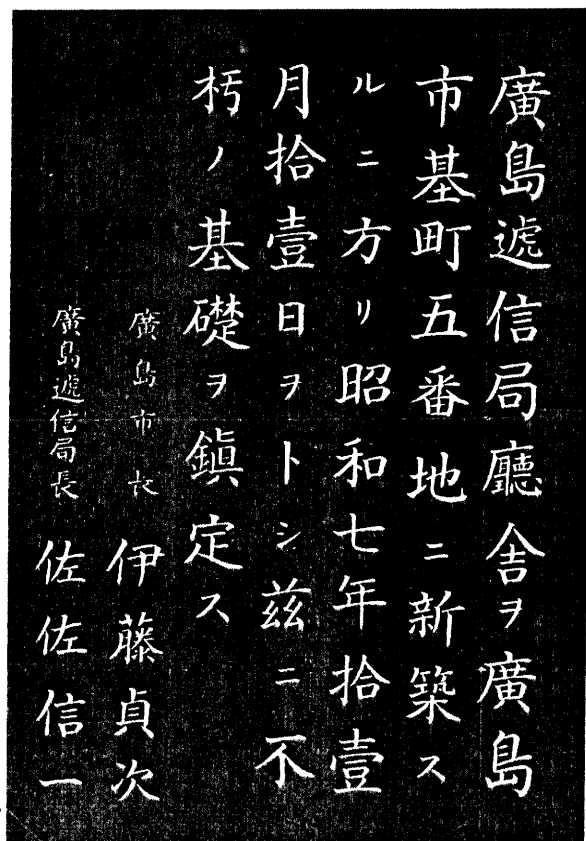 廣島遞信局廳舎ヲ廣島
市基町五番地ニ新築ス
ルニ方リ昭和七年拾壹
月拾壹日ヲトシ茲ニ不
朽ノ基礎ヲ鎭定ス
廣島市長 伊藤貞次
廣島遞信局長 佐佐信一